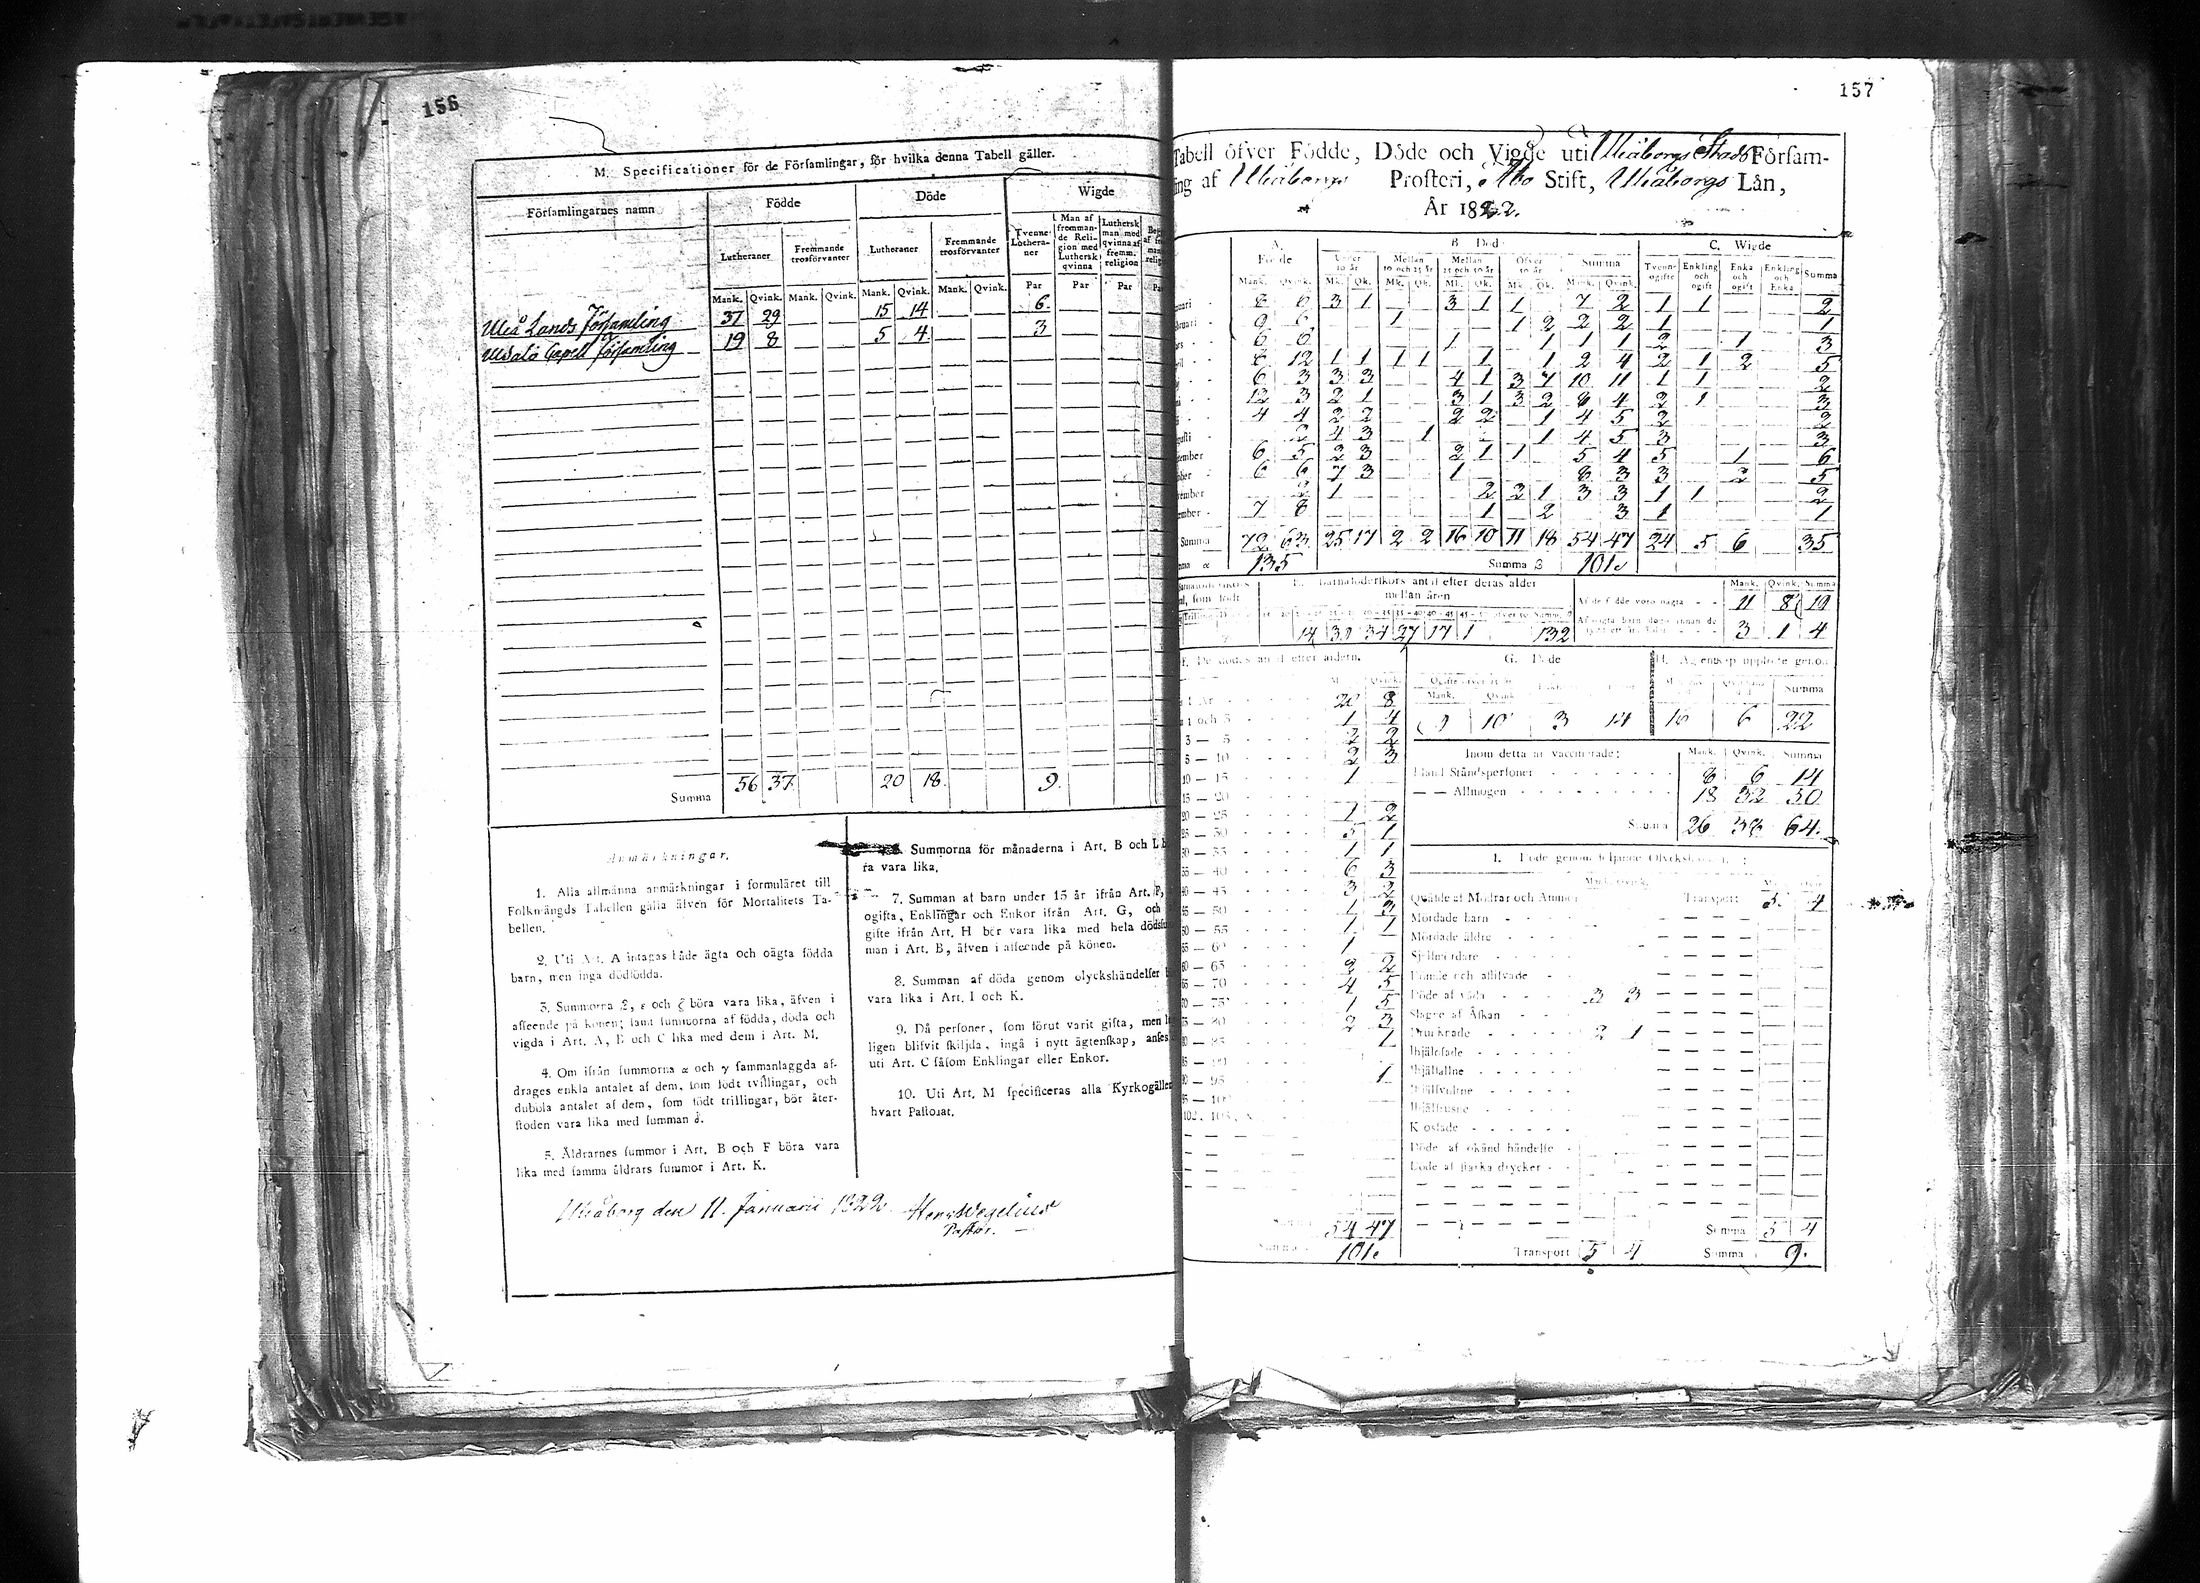 156
M. Specificationer för de Församlingar, för hvilka denna Tabell gäller.
Församlingarnes namn
Födde
Döde
Wigde
Lutheraner
Fremmande trosförvanter
Lutheraner
Fremmande trosförvanter
Tvenne Lutheraner
Man af fremmande Religion med Luthersk qvinna
Luthersk man med qvinna af fremm. religion
Mank. Qvink. Mank. Qvink. Mank. Qvink. Mank. Qvink. Par Par Par
Uleå Lands Församling 37 29 15 14 6.
Uleåsalo Capell Församling 19 8 5 4. 3
Summa 56 37. 20 18. 9.
Anmärkningar.
1. Alla allmänna anmärkningar i formuläret till
Folkmängds Tabellen gälla äfven för Mortalitets Ta-
bellen.
2. Uti Art. A intagas både ägta och oägta födda
barn, men inga dödfödda.
3. Summorna β, ε och ζ böra vara lika, äfven i
afseende på könen; samt summorna af födda, döda och
vigda i Art. A, B och C lika med dem i Art. M.
4. Om ifrån summorna α och γ sammanlaggda af-
drages enkla antalet af dem, som födt tvillingar, och
dubbla antalet af dem, som födt trillingar, bör åter-
stoden vara lika med summan δ.
5. Åldrarnes summor i Art. B och F böra vara
lika med samma åldrars summor i Art. K.
Summorna för månaderna i Art. B och L b
ra vara lika.
7. Summan af barn under 15 år ifrån Art. F,
ogifta, Enklingar och Enkor ifrån Art. G, och
gifte ifrån Art. H bör vara lika med hela dödssu
man i Art. B, äfven i afseende på könen.
8. Summan af döda genom olyckshändelser b
vara lika i Art. I och K.
9. Då personer, som förut varit gifta, men l
ligen blifvit skiljda, ingå i nytt ägtenskap, anses
uti Art. C såsom Enklingar eller Enkor.
10. Uti Art. M specificeras alla Kyrkogäller
hvart Pastorat.
Uleåborg den 11. Januarii 1822. Henr. Wegelius
Pastor.
157
Tabell öfver Födde, Döde och Vigde uti Uleåborgs Stads Försam-
ling af Uleåborgs Prosteri, Åbo Stift, Uleåborgs Län,
År 1822.
A. Födde
B. Död
C. Wigde
Under 10 år
Mellan 10 och 25 år
Mellan 25 och 50 år
Öfver 50 år
Summa
Tvenne ogifte
Enkling och ogift
Enka och ogift
Enkling och Enka
Summa
Mank. Qvink. Mk. Qk. Mk. Qk. Mk. Qk. Mk. Qk. Mank. Qvink.
uari 8 6 3 1 3 1 1 7 2 1 1 2
bruari 9 6 1 1 2 2 2 1 1
ars 6 6 1 1 1 1 2 1 3
ril 8 12 1 1 1 1 1 1 2 4 2 1 2 5
6 3 3 3 4 1 3 7 10 11 1 1 2
12 3 2 1 3 1 3 2 8 4 2 1 3
4 4 2 2 2 2 1 4 5 2 2
gusti 2 4 3 1 1 4 5 3 3
tember 6 5 2 3 2 1 1 5 4 5 1 6
ober 6 6 7 3 1 8 3 3 2 5
vember 2 1 2 2 1 3 3 1 1 2
ember 7 8 1 2 3 1 1
Summa 72 63 25 17 2 2 16 10 11 18 54 47 24 5 6 35
α 135 Summa β 101.
Barnaföderskors antal efter deras ålder
mellan åren
14 39 34 27 17 1 132
Mank. Qvink. Summa
Af de födde voro oägta 11 8 19
3 1 4
F. De dödes antal efter åldern.
20 8
1 och 3 1 4
3 — 5 2 2
5 — 10 2 3
10 — 15 1
15 — 20
20 — 25 1 2
25 — 30 3 1
30 — 35 1 1
35 — 40 6 3
40 — 45 3 2
45 — 50 1 3
50 — 55 1 1
55 — 60 1
60 — 65 2 2
65 — 70 4 5
70 — 75 1 5
75 — 80 2 3
80 — 85 1
85 — 90
90 — 95 1
95 — 100
54 47
Summa 101.
G. Döde
Ogifte öfver 15 år
Mank. Qvink.
9 10 3 14
H. Ägtenskap upplöste genom
Summa
16 6 22
Inom detta år vaccinerade: Mank. Qvink. Summa
Bland Ståndspersoner 8 6 14
— — Allmogen 18 32 50
Summa 26 38 64.
I. Döde genom följande Olyckshändelser:
Mank. Qvink.
Qväfde af Mödrar och Ammor Transport 5. 4
Mördade barn
Mördade äldre
Sjelfmördare
Döde af våda 3 3
Slagne af Åskan
Drunknade 2 1
Ihjälfallne
Ihjälfrusne
Döde af okänd händelse
Döde af starka drycker
Summa 5 4
Transport 5 4 Summa 9.